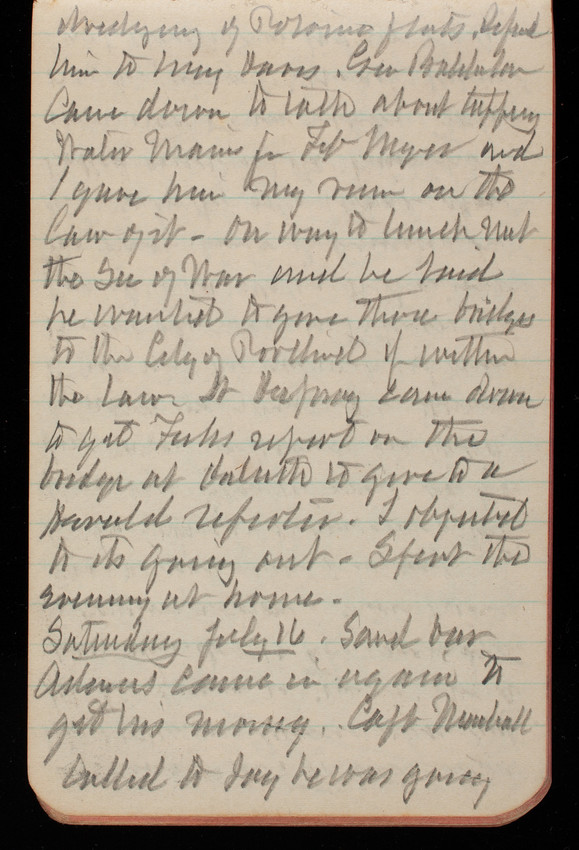 dredging of Potomac flats. Refered
him to Maj Davis. Gen Batchelder
Came down to talk about tapping
Water Mains for Fort Myer and
I gave him my view on the
Law of it - On way to lunch met
the Sec of War and he said
he wanted to give those bridges
to the City of Rock if within
the Law. Lt came down
to get report on the
bridge at Duluth to give to a
Herald reporter. I objected
to its going out - Spent the
evening at home -
Saturday July 16. Sand bar
Adams came in again to
get his money. Capt
Called to say he was going